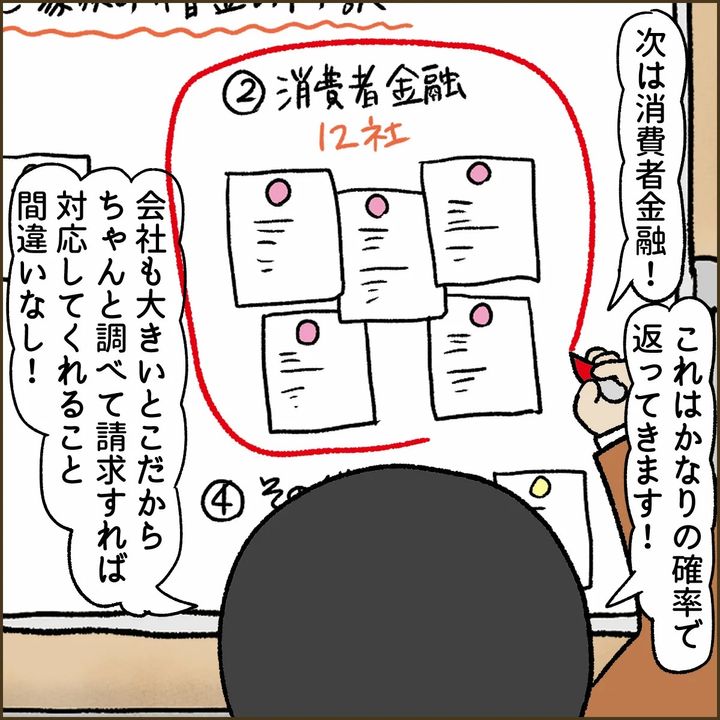 ② 消費者金融
12社
次は消費者金融！
これはかなりの確率で
返ってきます！
会社も大きいとこだから
ちゃんと調べて請求すれば
対応してくれること
間違いなし！
④ その